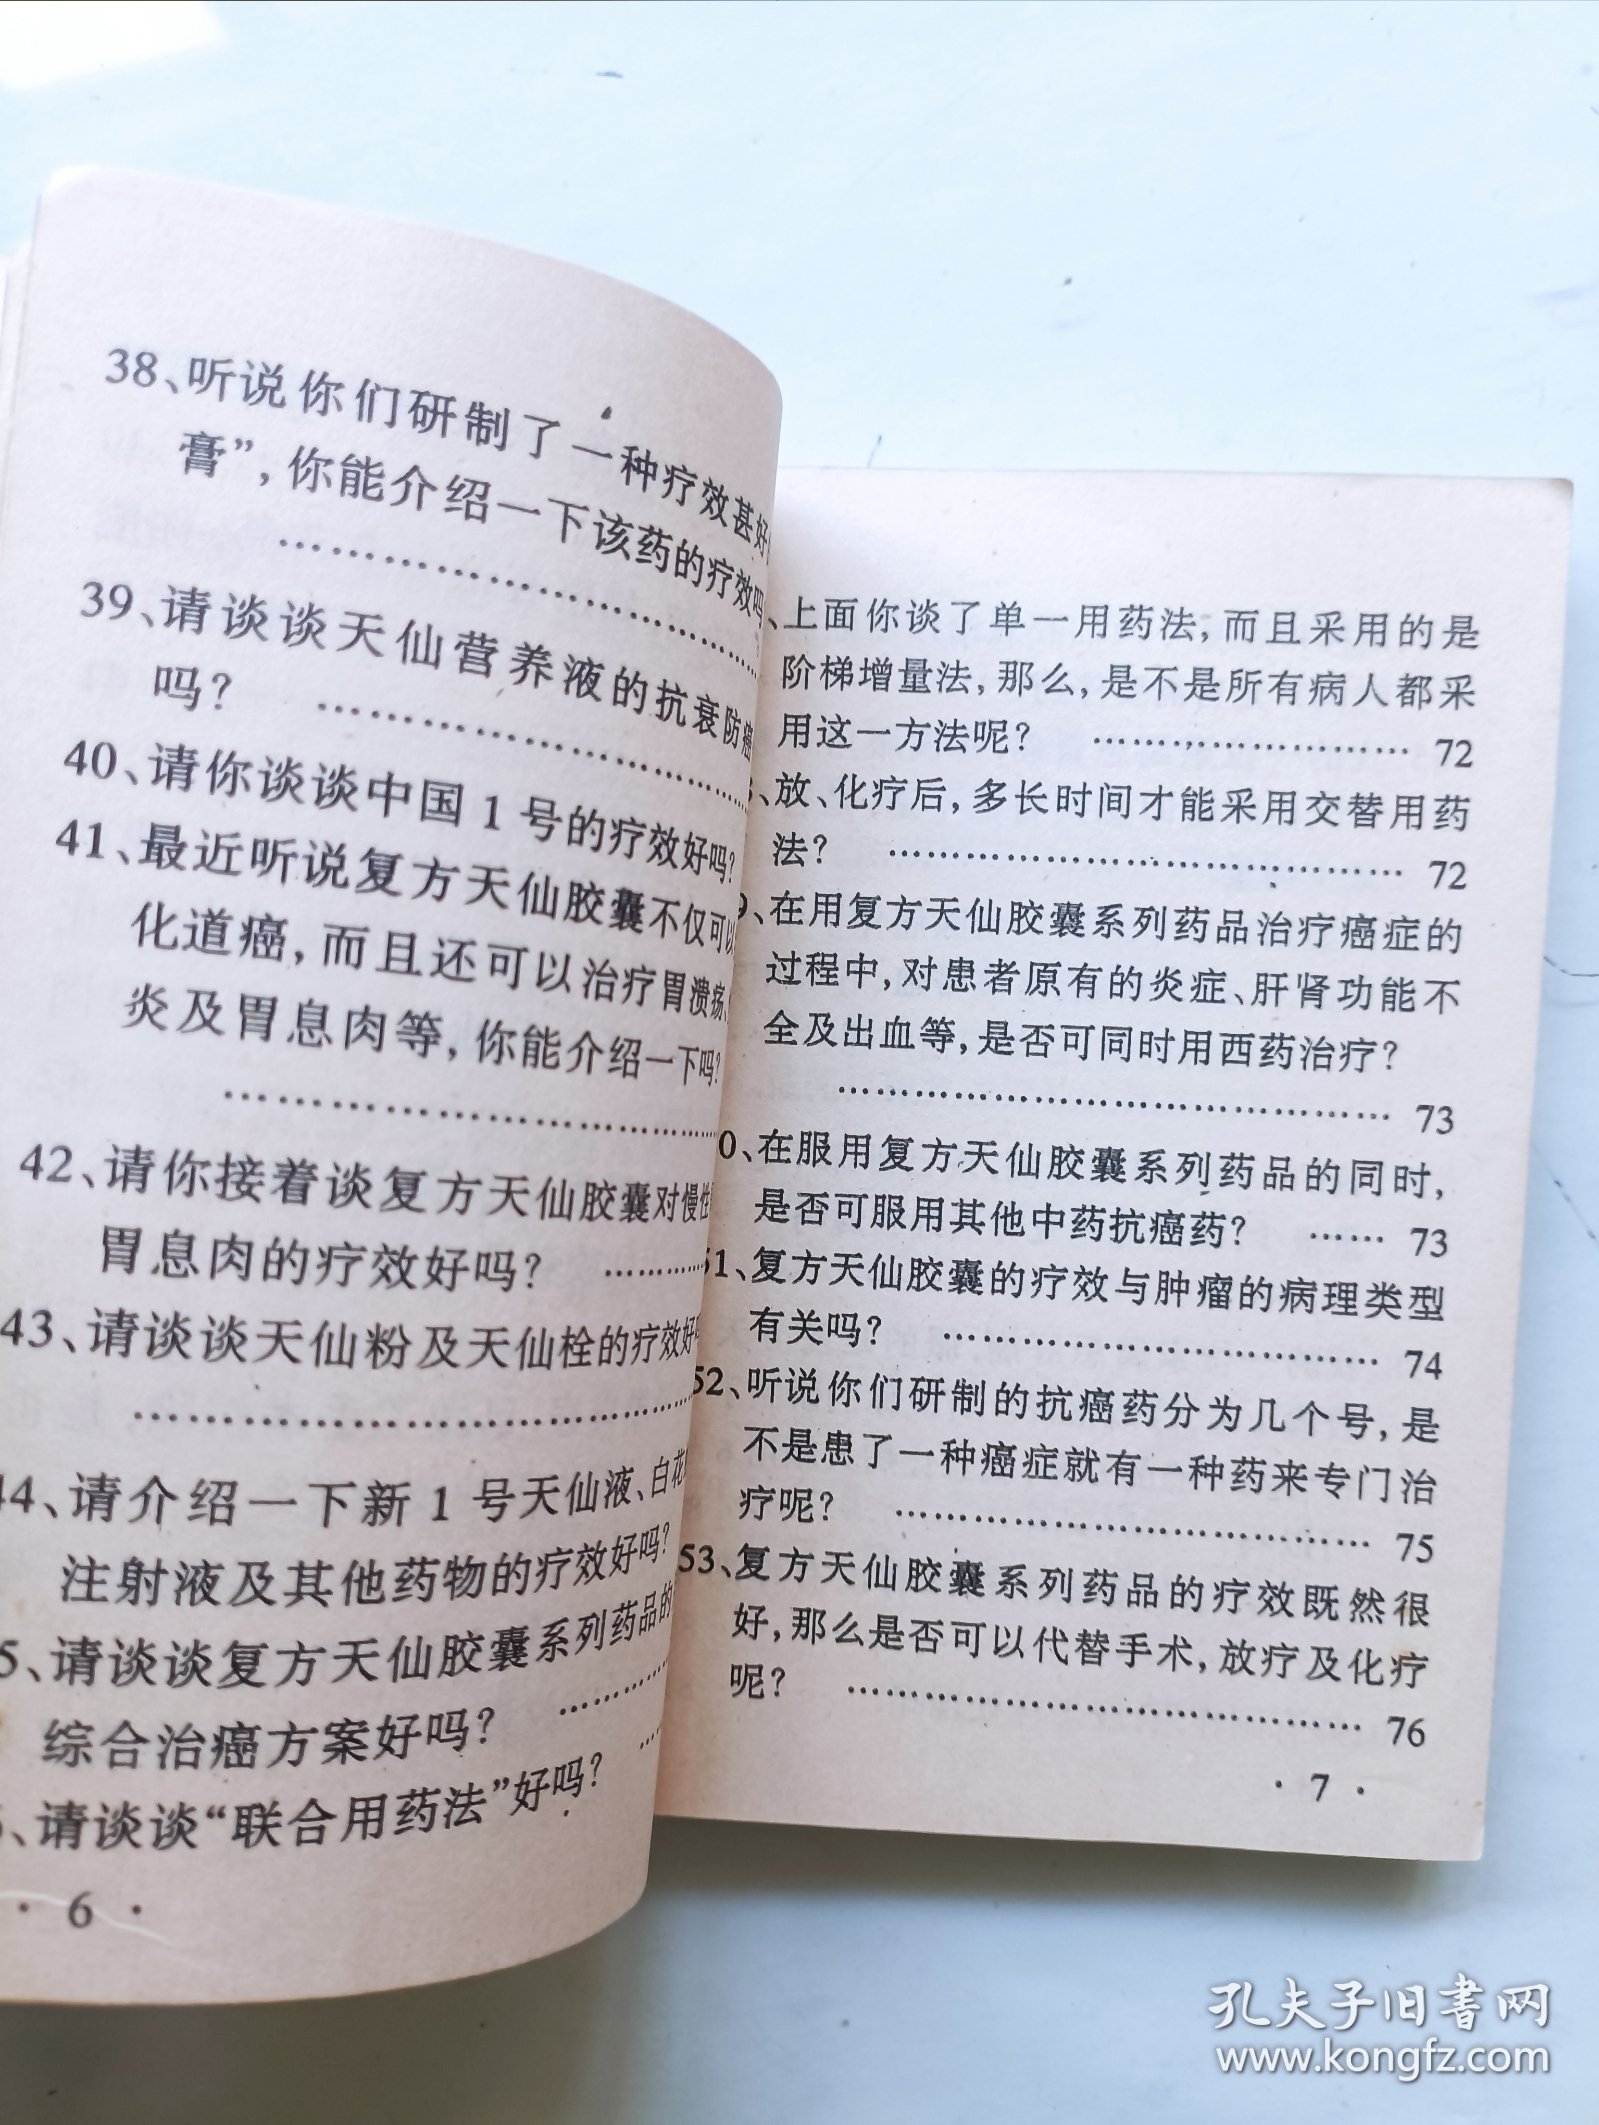 38、听说你们研制了一种疗效甚好
膏”,你能介绍一下该药的疗效吗
……………………
39、请谈谈天仙营养液的抗衰防癌
吗? ……………………
40、请你谈谈中国1号的疗效好吗?
41、最近听说复方天仙胶囊不仅可以
化道癌,而且还可以治疗胃溃疡、
炎及胃息肉等,你能介绍一下吗?
……………………
42、请你接着谈复方天仙胶囊对慢性
胃息肉的疗效好吗? …………
43、请谈谈天仙粉及天仙栓的疗效好
……………………
44、请介绍一下新1号天仙液、白花
注射液及其他药物的疗效好吗?
5、请谈谈复方天仙胶囊系列药品的
综合治癌方案好吗? …………
、请谈谈“联合用药法”好吗? …
· 6 ·
、上面你谈了单一用药法,而且采用的是
阶梯增量法,那么,是不是所有病人都采
用这一方法呢? …………………… 72
、放、化疗后,多长时间才能采用交替用药
法? …………………… 72
9、在用复方天仙胶囊系列药品治疗癌症的
过程中,对患者原有的炎症、肝肾功能不
全及出血等,是否可同时用西药治疗?
…………………… 73
0、在服用复方天仙胶囊系列药品的同时,
是否可服用其他中药抗癌药? …… 73
51、复方天仙胶囊的疗效与肿瘤的病理类型
有关吗? …………………… 74
52、听说你们研制的抗癌药分为几个号,是
不是患了一种癌症就有一种药来专门治
疗呢? …………………… 75
53、复方天仙胶囊系列药品的疗效既然很
好,那么是否可以代替手术,放疗及化疗
呢? …………………… 76
· 7 ·
孔夫子旧书网
www.kongfz.com